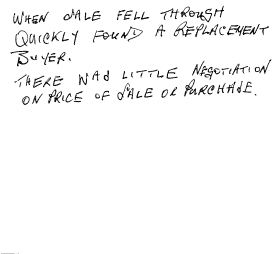 WHEN SALE FELL THROUGH
QUICKLY FOUND A REPLACEMENT
BUYER.
THERE WAS LITTLE NEGOTIATION
ON PRICE OF SALE OR PURCHASE.